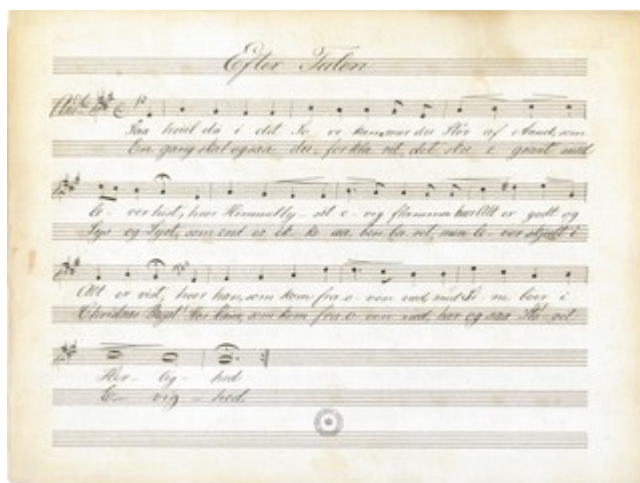 Efter Talen
Saa hvil da i det Fo, ve kam, mer du Støv af Aand, som
En gang skal ogsaa du, for kla ret, det sku e grant med
le - ver hist, hvor Himmelly - set e - vig flammer hvor Alt er godt og
Lys og Lyst, som end er ik ke aa, ben ba, ret, men le - ver skjult i
Alt er vist, hvor han, som kom fra o - ven ned, med Si - ne boer i
Christnes Bryst for han, som kom fra o - ven ned, har og saa Stø - vet
Her - lig - hed
E - vig - hed.